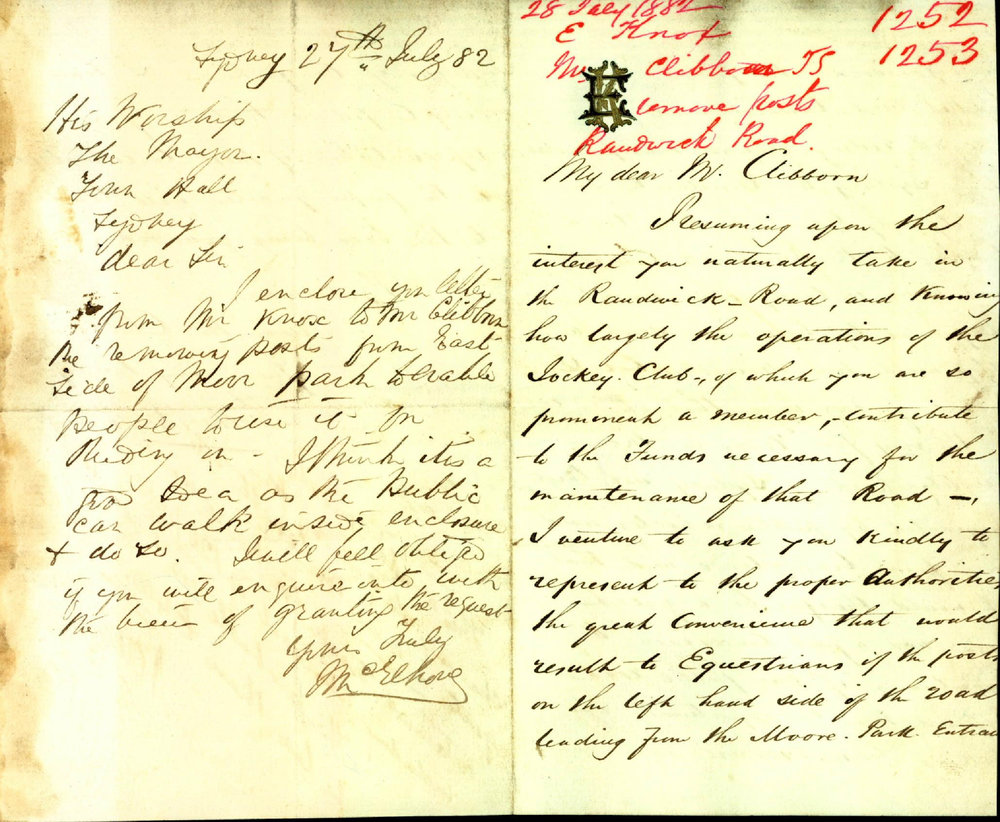 Sydney 27th July 82
His Worship
The Mayor.
Town Hall
Sydney
dear Sir
I enclose you letter
from Mr Knox to Mr Clibborn
re removing posts from East
Side of Moor park to enable
people to use it for
Riding on - I think it is a
good Idea as the Public
can walk inside enclosure
& do so. I will feel obliged
if you will enquire into with
the view of granting the request
Yours Truly
McElhone
28 July 1882 1252
E Knox 1253
Mr Clibborn
remove posts
Randwick Road.
EK
My dear Mr. Clibborn
Presuming upon the
interest you naturally take in
the Randwick - Road, and Knowing
how largely the operations of the
Jockey. Club -, of which you are so
prominent a member, - contribute
to the Funds necessary for the
maintenance of that Road -,
I venture to ask you Kindly to
represent to the proper Authorities
the great Convenience that would
result to Equestrians if the posts
on the left hand side of the road
leading from the Moore. Park. Entran